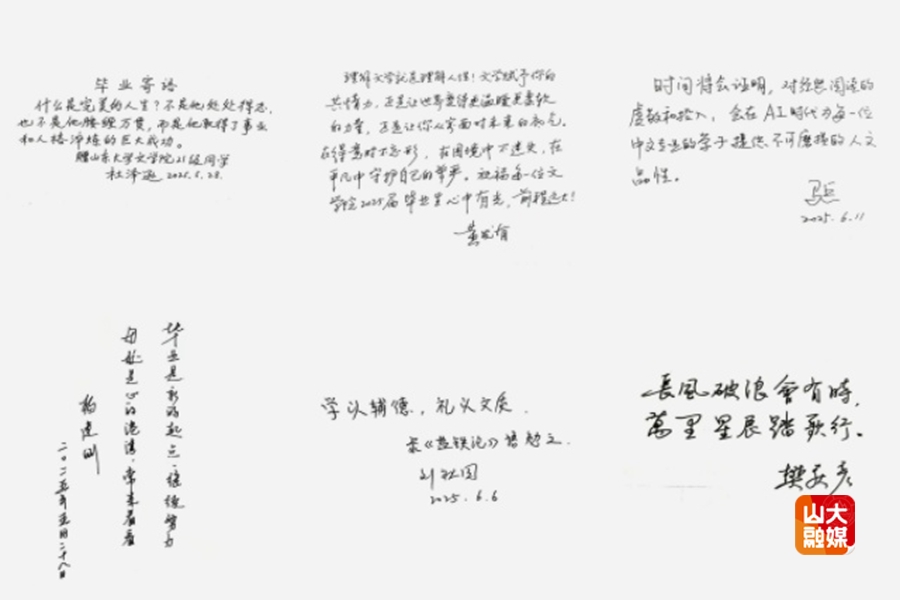 毕业寄语
什么是完美的人生？不是他处处得志，
也不是他腰缠万贯，而是他取得了事业
和人格淬炼的巨大成功。
赠山东大学文学院21级同学
杜泽逊 2025.5.28.
理解文学就是理解人性！文学赋予你的
共情力，正是让世界变得更温暖更柔软
的力量，正是让你从容面对未来的初心。
在得意时不忘形，在困境中不迷失，在
平凡中守护自己的尊严。祝福每一位文
学院2025届毕业生心中有光，前程远大！
黄发有
时间将会证明，对经典阅读的
虔敬和投入，会在AI时代为每一位
中文专业的学子提供不可磨损的人文
品性。
2025.6.11
毕业是新的起点，继续努力
母校是心的港湾，常来看看
杨建刚
二〇二五年五月二十八日
学以辅德，礼以文质。
录《盐铁论》语勉之.
刘祖国
2025.6.6
長風破浪會有時，
萬里星辰踏歌行。
樊庆彦
山大
融媒